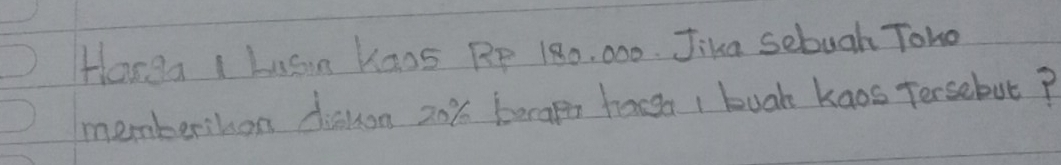 Harga 1 Lusin Kaos RP 180.000. Jika sebuah Toko
memberikan diskon 20% berapa harga 1 buah kaos Tersebut ?